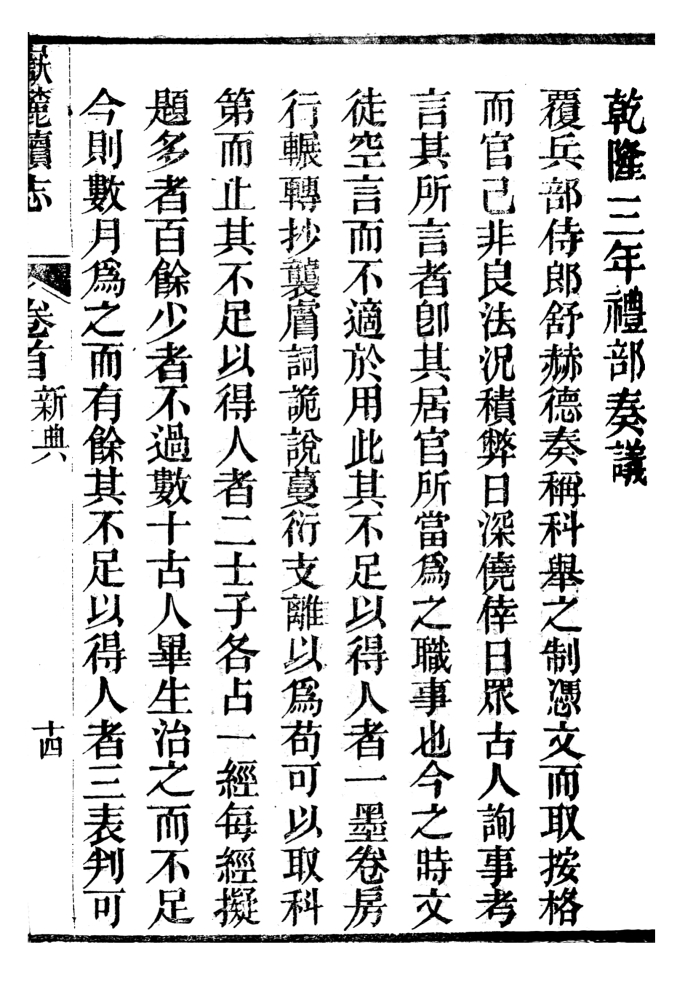 乾隆三年禮部奏議
覆兵部侍郎舒赫德奏稱科舉之制憑文而取按格
而官已非良法況積弊日深僥倖日眾古人詢事考
言其所言者卽其居官所當爲之職事也今之時文
徒空言而不適於用此其不足以得人者一墨卷房
行輾轉抄襲膚詞詭說蔓衍支離以爲苟可以取科
第而止其不足以得人者二士子各占一經每經擬
題多者百餘少者不過數十古人畢生治之而不足
今則數月爲之而有餘其不足以得人者三表判可
嶽麓續志
卷首
新典
十四